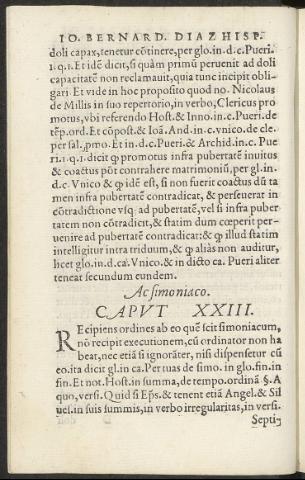 IO. BERNARD. DIAZ HISP.
doli capax, tenetur cõtinere, per glo. in. d. c. Pueri.
1. q. 1. Et idẽ dicit, si quàm primũ peruenit ad doli
capacitatẽ non reclamauit, quia tunc incipit obli-
gari. Et vide in hoc proposito quod no. Nicolaus
de Millis in suo repertorio, in verbo, Clericus pro
motus, vbi referendo Host. & Inno. in. c. Pueri. de
tẽp. ord. Et cõpost. & Ioã. And. in c. vnico. de cle.
per sal. pmo. Et in. d. c. Pueri. & Archid. in c. Pue
ri. 1. q. 1. dicit ꝙ promotus infra pubertatẽ inuitus
& coactus põt contrahere matrimoniũ, per gl. in.
d. c. Vnico & ꝙ idẽ est, si non fuerit coactus dũ ta
men infra pubertatẽ contradicat, & perseuerat in
cõtradictione vsq; ad pubertatẽ, vel si infra puber
tatem non cõtradicit, & statim dum cœperit per-
uenire ad pubertatẽ contradicat: & ꝙ illud statim
intelligitur intra triduum, & ꝙ aliàs non auditur,
licet glo. in. d. ca. Vnico. & in dicto ca. Pueri aliter
teneat secundum eundem.
Ac simoniaco.
CAPVT XXIII.
REcipiens ordines ab eo quẽ scit simoniacum,
nõ recipit executionem, cũ ordinator non ha
beat, nec etiã si ignorãter, nisi dispensetur cũ
eo. ita dicit gl. in ca. Per tuas de simo. in glo. fin. in
fin. Et not. Host. in summa, de tempo. ordinã §. A
quo, versi. Quid si Ep̃s. & tenent etiã Angel. & Sil
uest. in suis summis, in verbo irregularitas, in versi.
Septi-